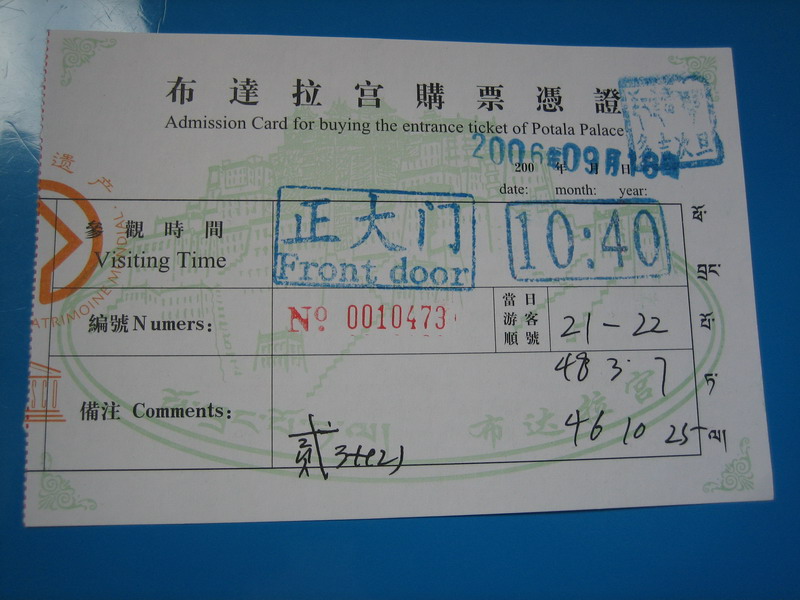 布達拉宫購票憑證
Admission Card for buying the entrance ticket of Potala Palace
2006年09月18日
200 年 月 日
date: month: year:
参觀時間
Visiting Time
正大门
Front door
10:40
編號Numers:
Nº 0010473
當日
游客
順號
21-22
48 3 7
備注 Comments:
46 10 25
贰
布达拉宫
遗产
PATRIMOINE MONDIAL